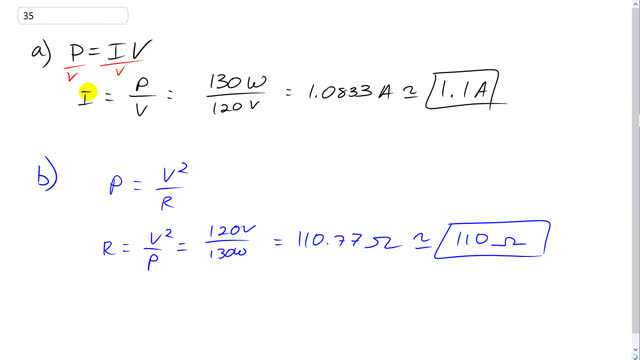 35
a) P = I V
V V
I = P/V = 130W/120V = 1.0833 A ≃ 1.1A
b) P = V²/R
R = V²/P = 120V/130W = 110.77Ω ≃ 110Ω